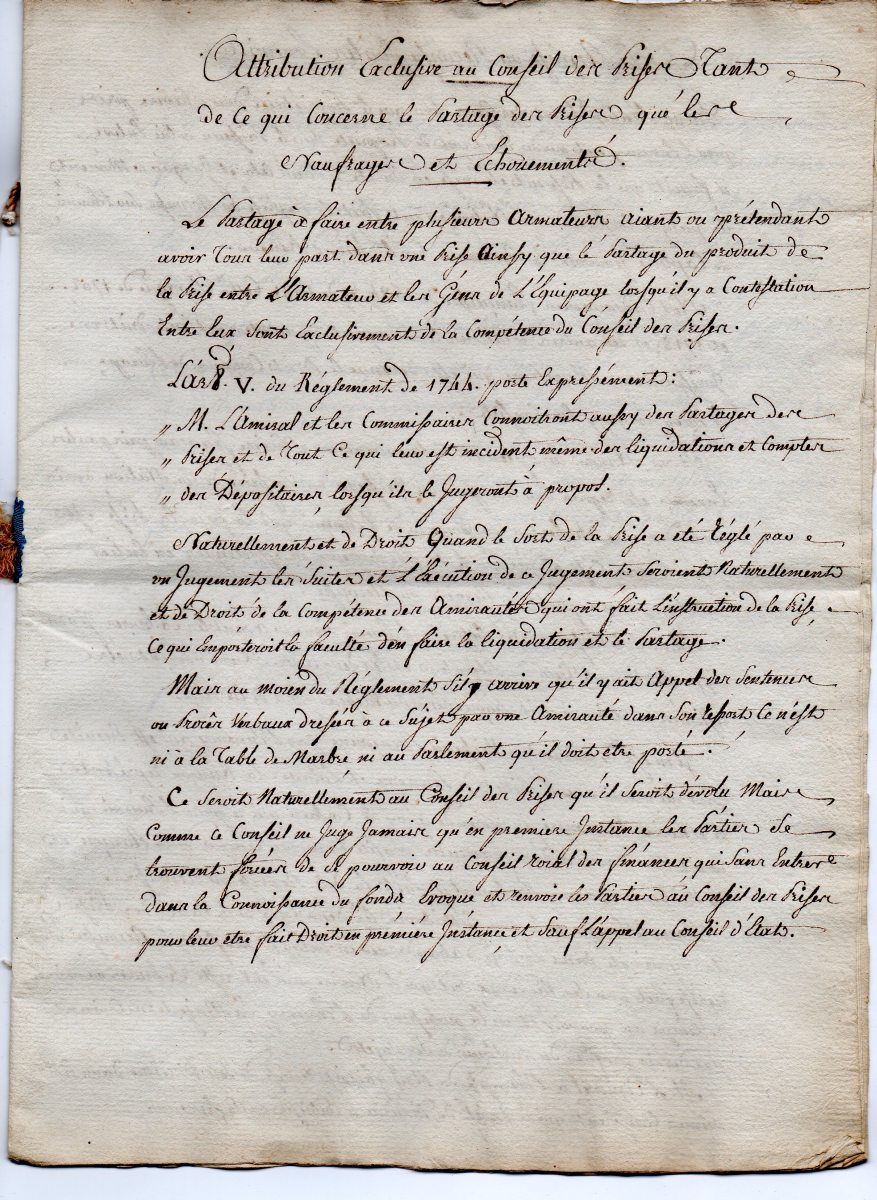 Attribution Exclusive au Conseil des Prises Tant
de Ce qui Concerne le Partage des Prises que les
Naufrages et Echouements.
Le Partage à faire entre plusieurs Armateurs aiant ou prétendant
avoir Tous leur part dans une Prise Ainsy que le Partage du produit de
la Prise entre L'Armateur et les Géns de L'Equipage lorsqu'il y a Contestation
Entre Eux sont Exclusivement de la Compétence du Conseil des Prises.
L'árt. V. du Réglement de 1744. porte Expressément:
„ M. L'Amiral et les Commissaires Connoitront aussy des Partages des
„ Prises et de Tout Ce qui leur est incident même des liquidations et Comptes
„ des Dépositaires lorsqu'ils le Jugeront à propos.
Naturellement et de Droit Quand le Sort de la Prise a été réglé par
un Jugement les Suites et l'Exécution de ce Jugement Seroient Naturellement
et de Droit de la Compétence des Amirautés qui ont fait L'instruction de la Prise
Ce qui Emporteroit la faculté d'en faire la liquidation et le Partage.
Mais au moién du Réglement S'il arrive qu'il y ait Appel des Sentences
ou Procès Verbaux dressés à ce Sujet par une Amirauté dans Son ressort Ce n'est
ni à la Table de Marbre ni au Parlement qu'il doit etre porté.
Ce Seroit Naturellement au Conseil des Prises qu'il Seroit dévolu Mais
Comme ce Conseil ne Juge Jamais qu'en premiere Instance les Parties Se
trouvent forcées de se pourvoir au Conseil roial des finances qui Sans Entrer
dans la Connoissance du fonds Evoque et renvoie les Parties au Conseil des Prises
pour leur etre fait Droit en prémiére Instance et Sauf L'appel au Conseil d'Etat.